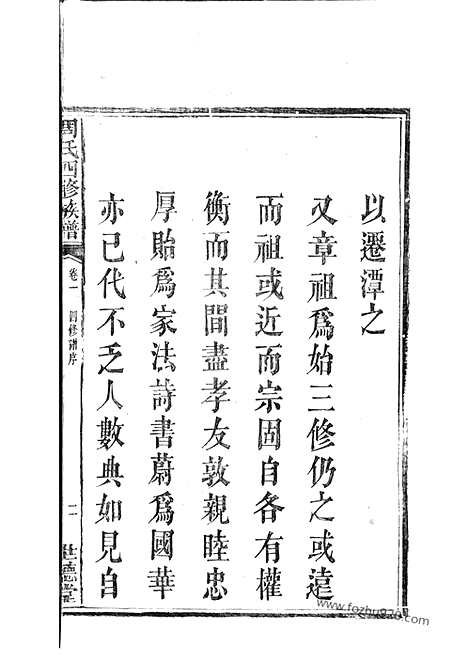 以遷潭之
又章祖爲始三修仍之或遠
而祖或近而宗固自各有權
衡而其間盡孝友敦親睦忠
厚貽爲家法詩書蔚爲國華
亦已代不乏人數典如見自
周氏四修族譜
卷一 四修譜序
二
世德堂
www.fozhu920.com